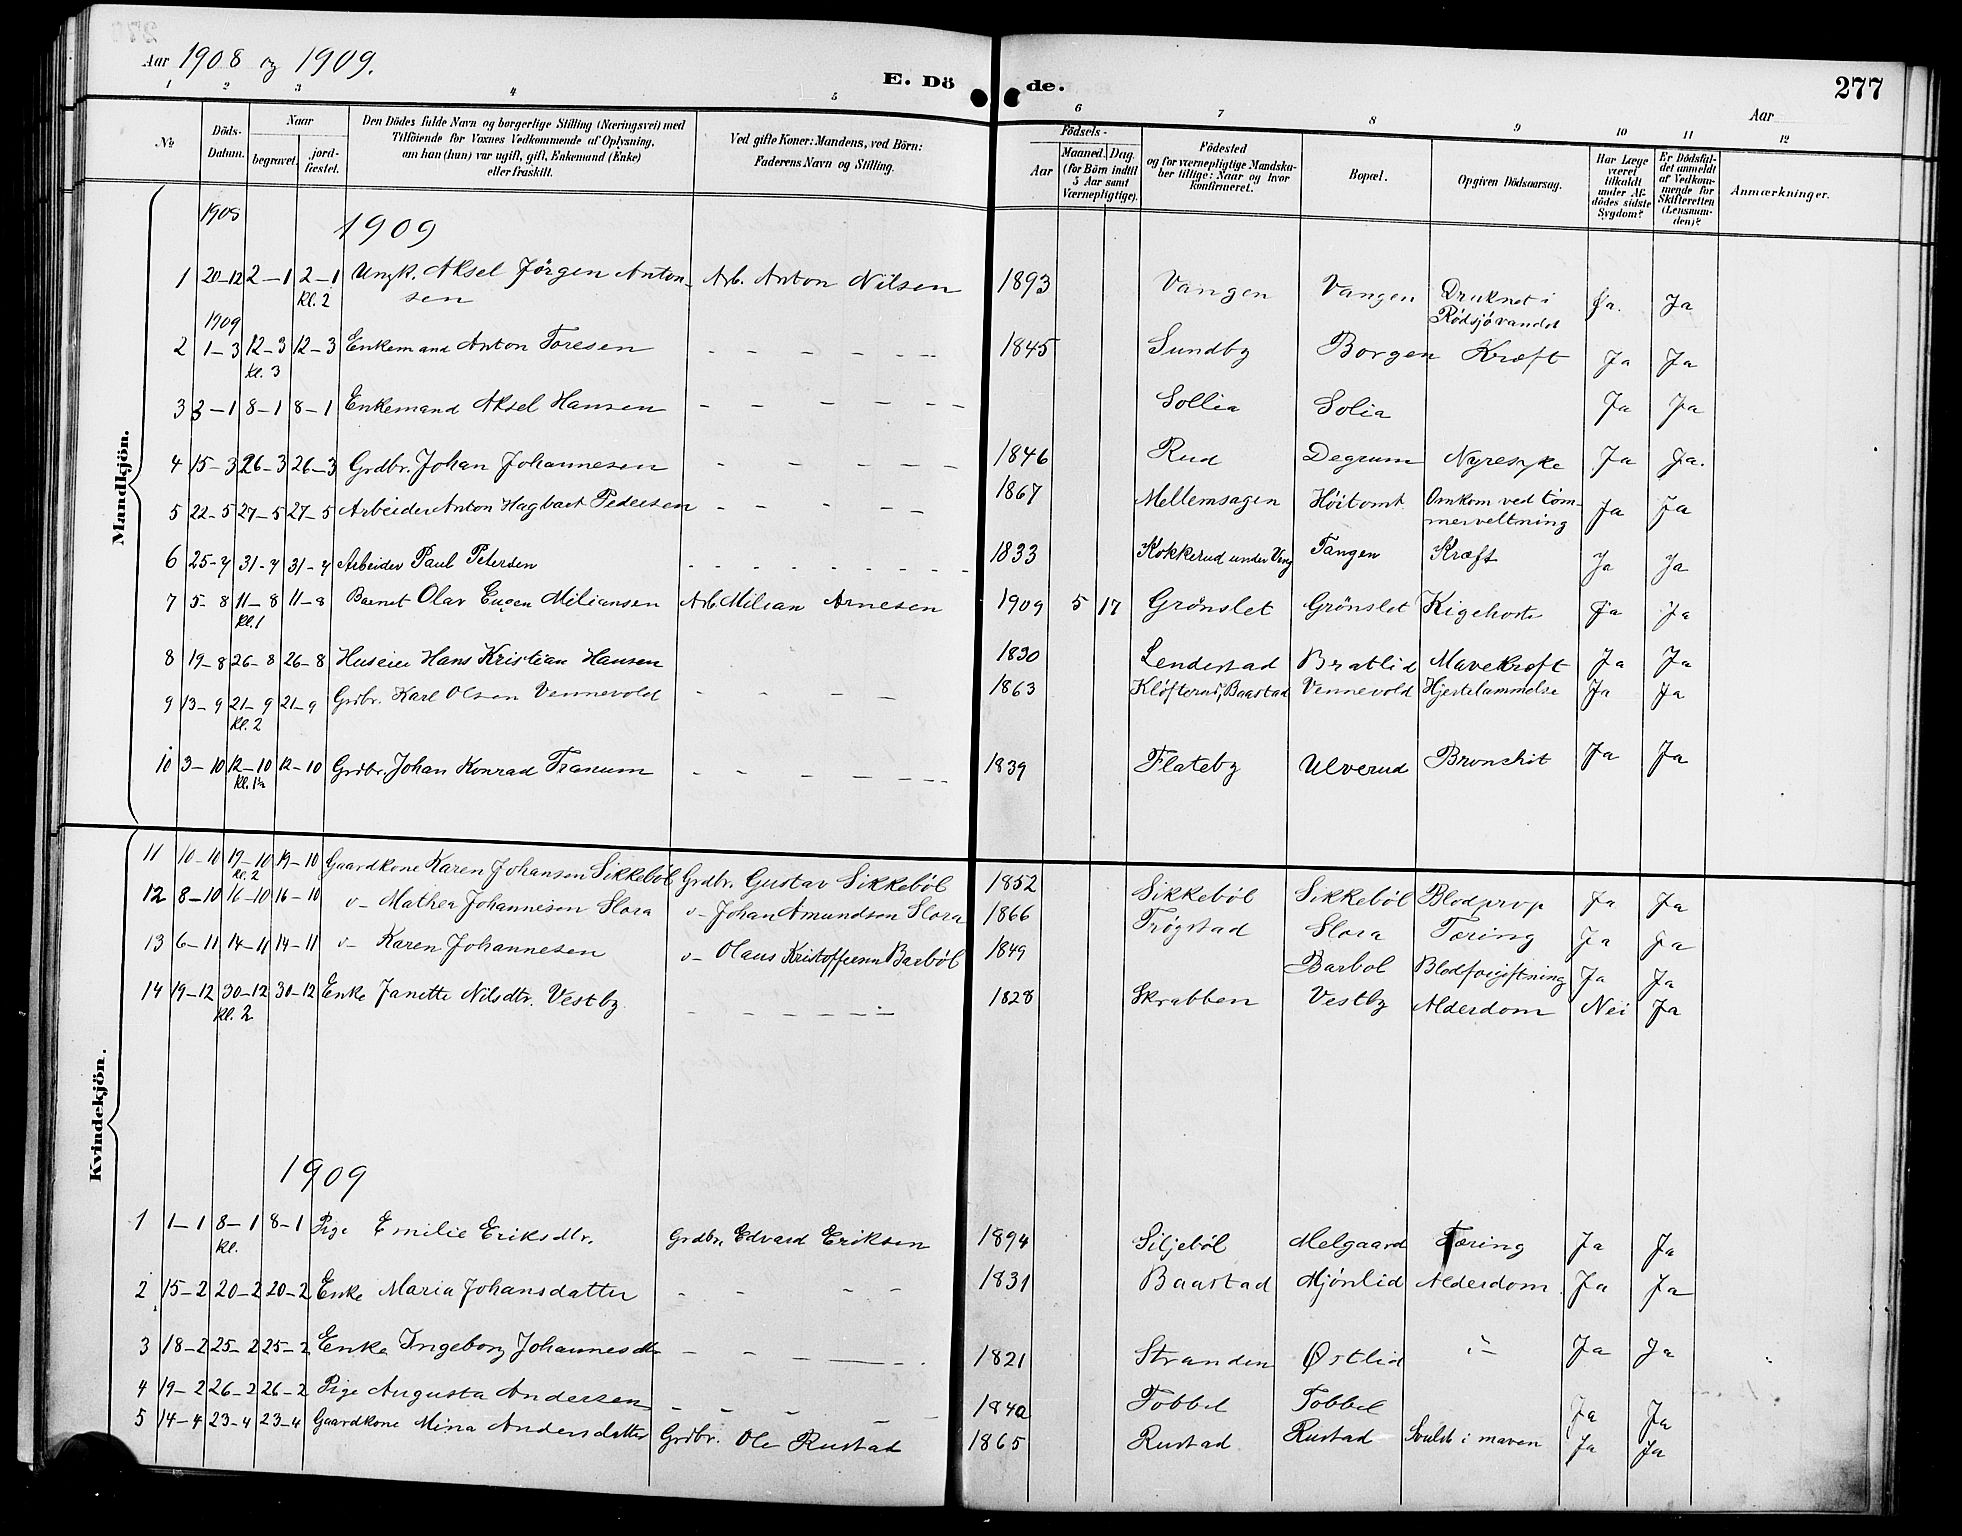 Aar 1908 og 1909.
E. Döde.
277
Aar
1 2 3 4 5 6 7 8 9 10 11 12
No
Döds-Datum.
Naar
begravet.
jord-fæstet.
Den Dödes fulde Navn og borgerlige Stilling (Næringsvei) med
Tilföiende for Voxnes Vedkommende af Oplysning,
om han (hun) var ugift, gift, Enkemand (Enke)
eller fraskilt.
Ved gifte Koner: Mandens, ved Börn:
Faderens Navn og Stilling.
Födsels-
Aar
Maaned. Dag.
(for Börn indtil
5 Aar samt
Værnepligtige).
Födested
og for værnepligtige Mandska-
ber tillige: Naar og hvor
konfirmeret.
Bopæl.
Opgiven Dödsaarsag.
Har Læge
været
tilkaldt
under Af-
dödes sidste
Sygdom?
Er Dödsfal-
det anmeldt
af Vedkom-
mende for
Skifteretten
(Lensman-
den)?
Anmærkninger.
Mandkjön.
1908
1909
1 20-12 2-1 2-1 Ungk. Aksel Jörgen Anton- Arb. Anton Nilsen 1893 Vangen Vangen Druknet i Ja. Ja
kl. 2 sen Rödsjövandet
1909
2 1-3 12-3 12-3 Enkemand Anton Toresen - - - - - - 1845 Sundby Borgen Kræft Ja Ja
kl. 3
3 3-1 8-1 8-1 Enkemand Aksel Hansen - - - - - Sollia Solia Ja Ja
4 15-3 26-3 26-3 Grdbr. Johan Johannesen - - - - - 1846 Rud Degrum Nyresyke Ja Ja.
5 22-5 27-5 27-5 Arbeider Anton Hagbart Pedersen - - - - - 1867 Mellemsagen Höitomt Omkom ved töm- Ja Ja
merveltning
6 25-7 31-7 31-7 Arbeider Paul Petersen - - - - - - - - 1833 Kokkerud under Tangen Kræft Ja Ja
7 5-8 11-8 11-8 Barnet Olav Eugen Miliansen Arb. Milian Arnesen 1909 5 17 Grönslet Grönslet Kigehoste Ja Ja
kl. 1
8 19-8 26-8 26-8 Huseier Hans Kristian Hansen 1830 Lenderstad Bratlid Mavekræft Ja Ja
9 13-9 21-9 21-9 Grdbr. Karl Olsen Vennevold - - - - 1863 Baastad Vennevold Hjertelammelse Ja Ja
kl. 2
10 3-10 12-10 12-10 Grdbr. Johan Konrad Tranum - - - - - - - 1839 Flateby Ulverud Bronchit Ja Ja
kl. 1½
Kvindekjön.
11 10-10 19-10 19-10 Gaardkone Karen Johansen Sikkeböl Grdbr. Gustav Sikkeböl 1852 Sikkeböl Sikkeböl Blodprop Ja Ja
kl. 2
12 8-10 16-10 16-10 v- Mathea Johannesen Slora v- Johan Amundsen Slora 1866 Trögstad Slora Tæring Ja Ja
13 6-11 14-11 14-11 v- Karen Johannesen v- Olaus Kristoffersen Barböl 1849 Barbol Blodforgiftning Ja Ja
14 19-12 30-12 30-12 Enke Janette Nilsdtr. Vestby - - - - - - 1828 Skrabben Vestby Alderdom Nei Ja
kl. 2
1909
1 1-1 8-1 8-1 Pige Emilie Eriksdtr. Grdbr. Edvard Eriksen 1894 Siljeböl Melgaard Tæring Ja Ja
kl.
2 15-2 20-2 20-2 Enke Maria Johansdatter - - - - 1831 Baastad Mjönlid Alderdom. Ja Ja
3 18-2 25-2 25-2 Enke Ingeborg Johannesdtr - - - - - 1821 Stranden Östlid v- Ja Ja
4 19-2 26-2 26-2 Pige Augusta Andersen - - - - - 1840 Tobbel Tobbel Ja Ja
5 14-4 23-4 23-4 Gaardkone Mina Andersdatter Grdbr. Ole Rustad 1865 Rustad Rustad Svulst i maven Ja Ja